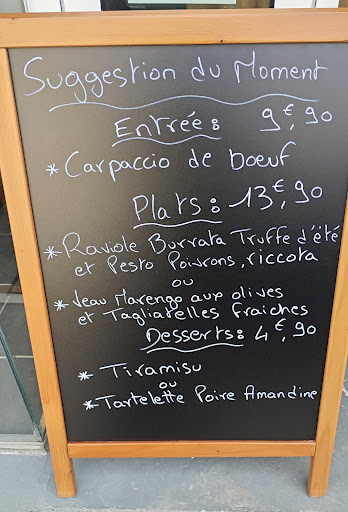 Suggestion du Moment
Entrée: 9€,90
* Carpaccio de boeuf
Plats: 13€,90
* Raviole Burrata Truffe d'été
et Pesto Poivrons, riccota
ou
* Veau Marengo aux olives
et Tagliatelles fraiches
Desserts: 4€,90
* Tiramisu
ou
* Tartelette Poire Amandine